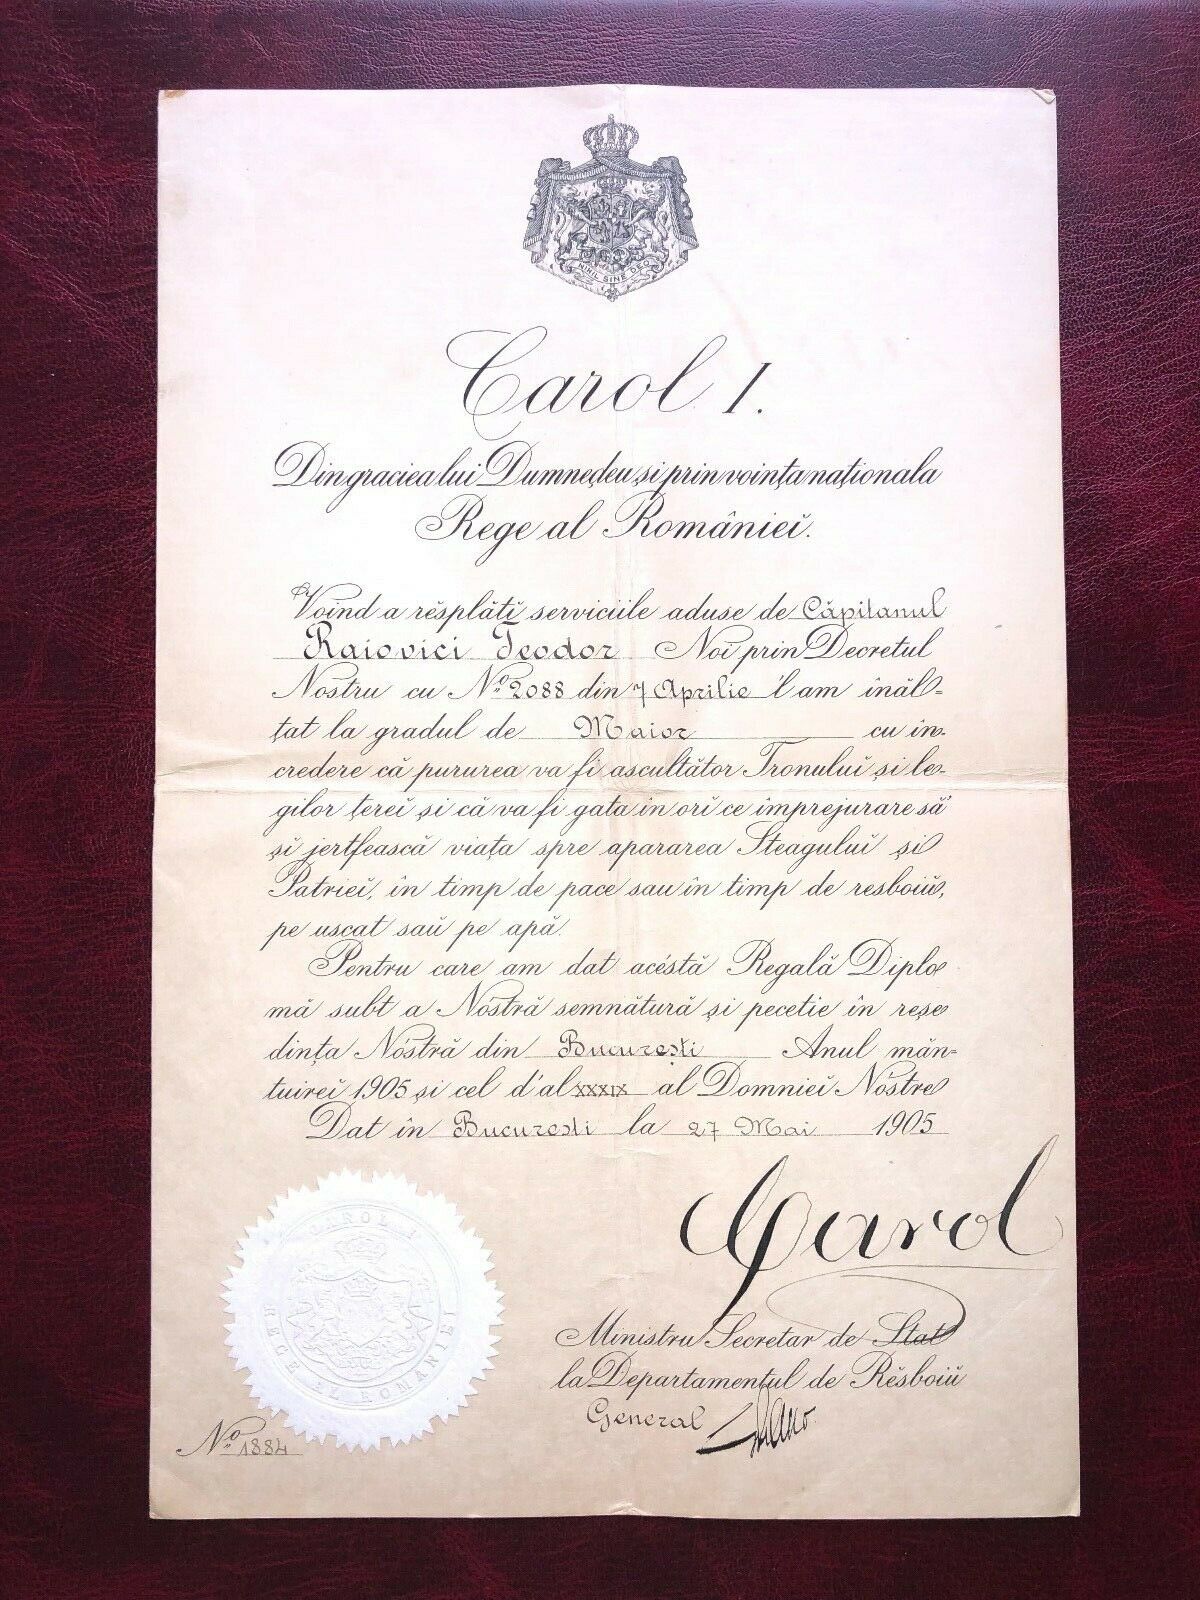 NIHIL SINE DEO
Carol I.
Din graciea lui Dumnedeu și prin voința naționala
Rege al Româniеĭ.
Voind a rĕsplăti serviciile aduse de Căpitanul
Raiovici Teodor Noĭ prin Decretul
Nostru cu No. 2088 din 7 Aprilie l'am înăl-
țat la gradul de Maior cu în-
credere că pururea va fi ascultător Tronuluĭ și le-
gilor țereĭ și că va fi gata in orĭ ce imprejurare să'
șĭ jertfească viața spre apararea Steaguluĭ și
Patrieĭ, în timp de pace sau în timp de resboiŭ,
pe uscat saŭ pe apă.
Pentru care am dat acéstă Regală Diplo-
mă subt a Nóstră semnătură și pecetie în reșe-
dința Nóstră din Bucureștĭ Anul mân-
tuireĭ 1905 și cel d'al XXXIX al Domnieĭ Nóstre
Dat în Bucureștĭ la 27 Mai 1905
Carol
CAROL I
REGE AL ROMANIEI
Ministru Secretar de Stat
la Departamentul de Rĕsboiŭ
General
No. 1884